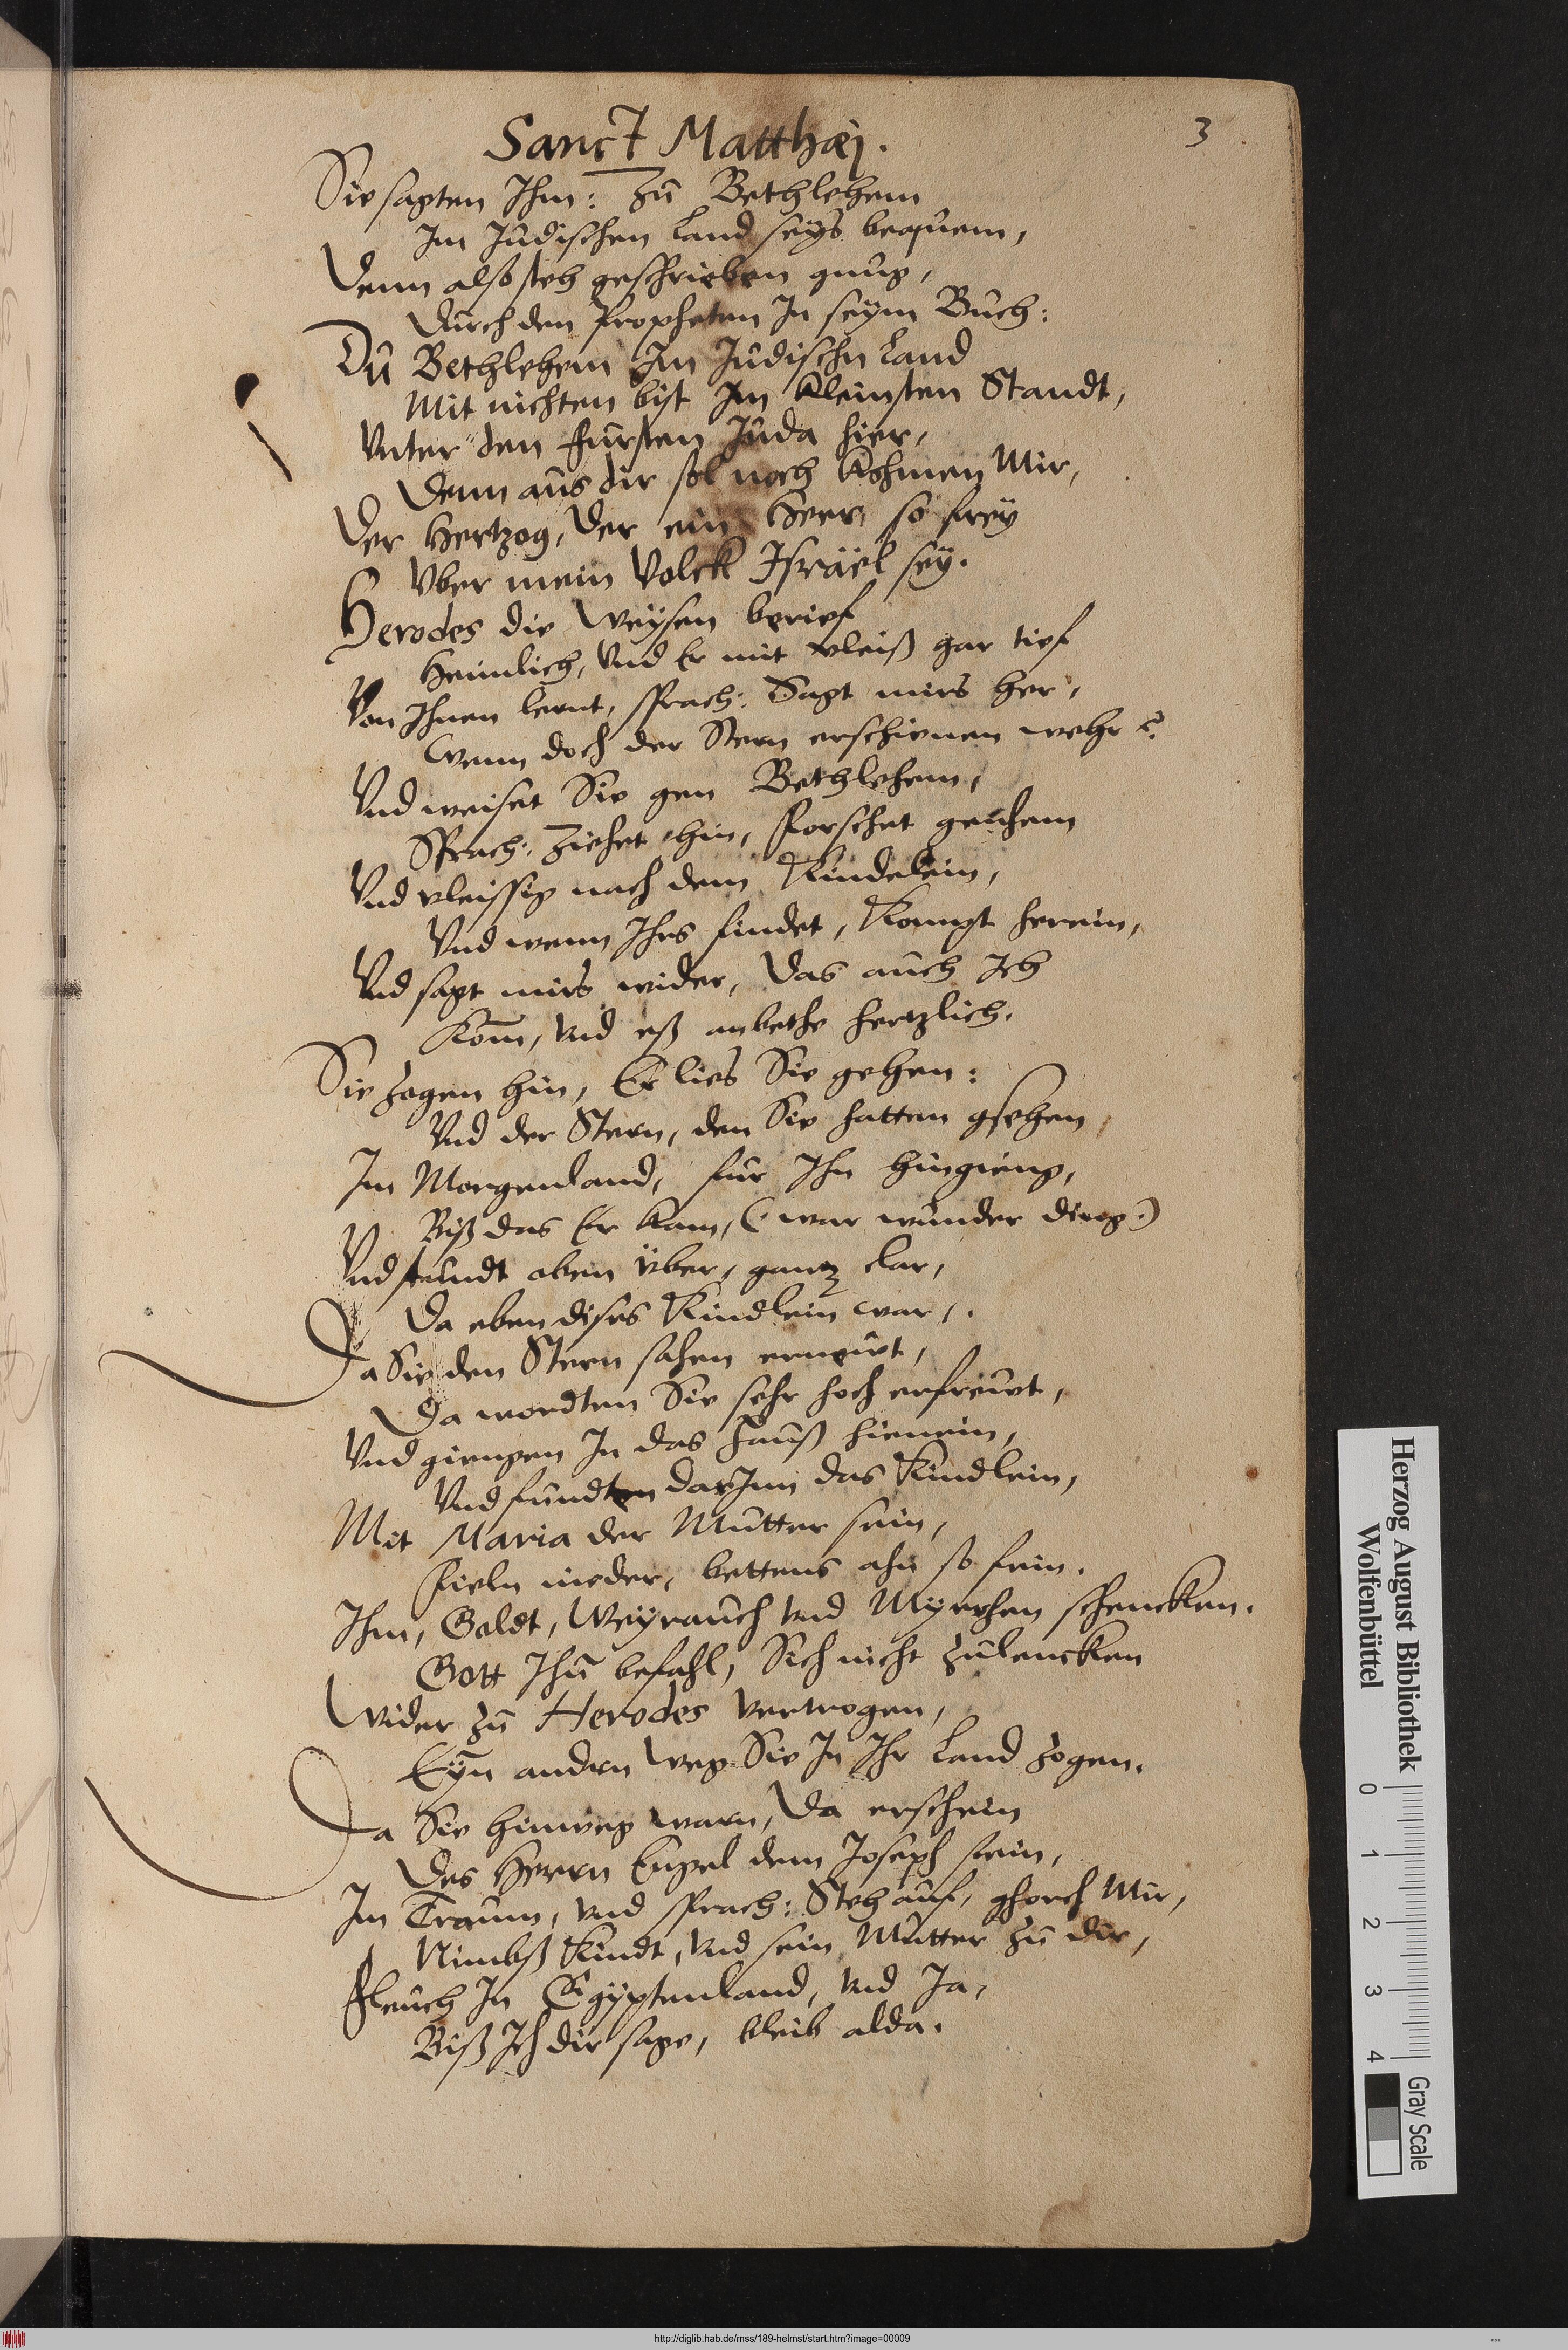 Sanct Matthæj.
3
Sie sagten Ihm: Zu Bethlehem
Im Judischen Land seÿs bequem,
Denn also steh geschrieben gnug,
Durch den Propheten In seÿm Buch:
Du Bethlehem Im Judischn Land
Mit nichten bist Im kleinsten Standt,
Unter den Fursten Juda hier,
Denn aus dir sol noch kohmen Mir,
Der Hertzog, der ein Heer so freÿ
Uber mein Volck Israël seÿ.
Herodes die Weÿsen berief
Heimlich, Und Er mit vleiß gar tief
Von Ihnen lernt, sprach: Sagt mirs her,
Wenn doch der Stern erschienen wehr?
Und weiset Sie gen Bethlehem,
Sprach: Ziehet hin, forschet genehem
Und vleissig nach dem Kindelein,
Und wenn Ihrs findet, Kompt herein,
Und sagt mirs wider, Das auch Ich
Kom̄, und eß anbethe hertzlich.
Sie zogen hin, Er lies Sie gehen:
Und der Stern, den Sie hatten gsehen
Im Morgenland, fur Ihn hingieng,
Biß das Er kam, (war wunder ding.)
Und stundt oben über, gantz clar,
Da eben dises Kindlein war,.
Da Sie den Stern sahen ernewt,
Da wordten Sie sehr hoch erfrewt,
Und giengen In das Hauß hienein,
Und fundten darInn das Kindlein,
Mit Maria der Mutter sein,
Fieln nieder, bettens ahn so fein.
Ihm, Goldt, Weÿrauch und Mÿrrhen schenckten.
Gott Ihn̄ befahl, Sich nicht zulencken
Wider zu Herodes vertrogen,
Eÿn̄ andrn Weg Sie In Ihr Land zogen.
Da Sie hinweg warn, Da erschein
Des Herrn Engel dem Joseph fein,
Im Traum, und sprach: Steh auf, ghorch Mir,
Nimbß Kindt, und sein Mutter zu dir,
Fleuch In Egÿptenland, und Ja,
Biß Ich dir sage, bleib alda.
Herzog August Bibliothek
Wolfenbüttel
0 1 2 3 4
Gray Scale
http://diglib.hab.de/mss/189-helmst/start.htm?image=00009